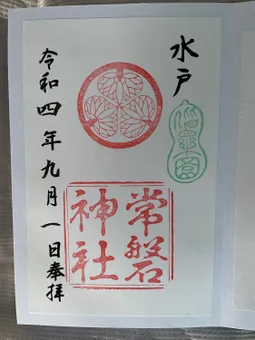 水戸
常磐
神社
令和四年九月一日奉拝